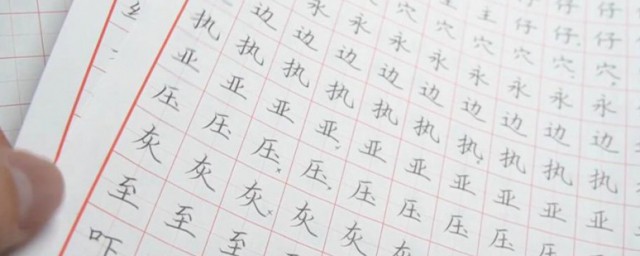 仔 仔
主 仔 仔 仔
穴 穴 穴 穴 穴 穴
永 永 永 永 永 永 永 永
边 边 边 边 边 边 边 边 边
执 执 执 执 执 执 执 执 执 执
亚 亚 亚 亚 亚 亚 亚 亚 亚 亚
压 压 压 压 压 压 压 压 压
灰 灰 灰 灰 灰 灰
至 至 至
吓